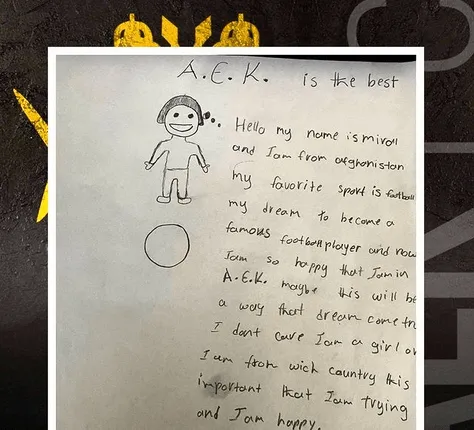 A.E.K. is the best
Hello my name is miroll
and Iam from afghanistan
my favorite sport is football
my dream to become a
famous football player and now
Iam so happy that Iam in
A.E.K. maybe this will be
a way that dream come tr
I dont care Iam a girl or
Iam from wich cauntry this
important that Iam trying
and Iam happy.